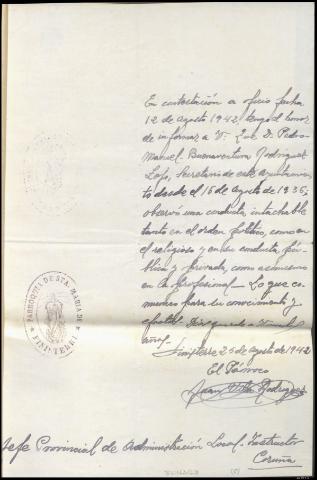 En contestación a oficio fecha
12 de agosto 1942, tengo el honor
de informar a V: Que D. Pedro
Manuel Buenaventura Rodriguez
Secretario de este Ayuntamien-
to desde el de agosto de 1936,
observó una conducta intachable
tanto en el orden politico, como en
el religioso y en su conducta pú-
blica y privada, como asimismo
en la profesional. Lo que co-
munico para su conocimiento y
efectos. Dios guarde a V. muchos
años.
Finisterre 25 de agosto de 1942
El Párroco
Juan Rodriguez
Jefe Provincial de Administración Local. Instructor
Coruña
PARROQUIA DE STA. MARIA DE
FINISTERRE